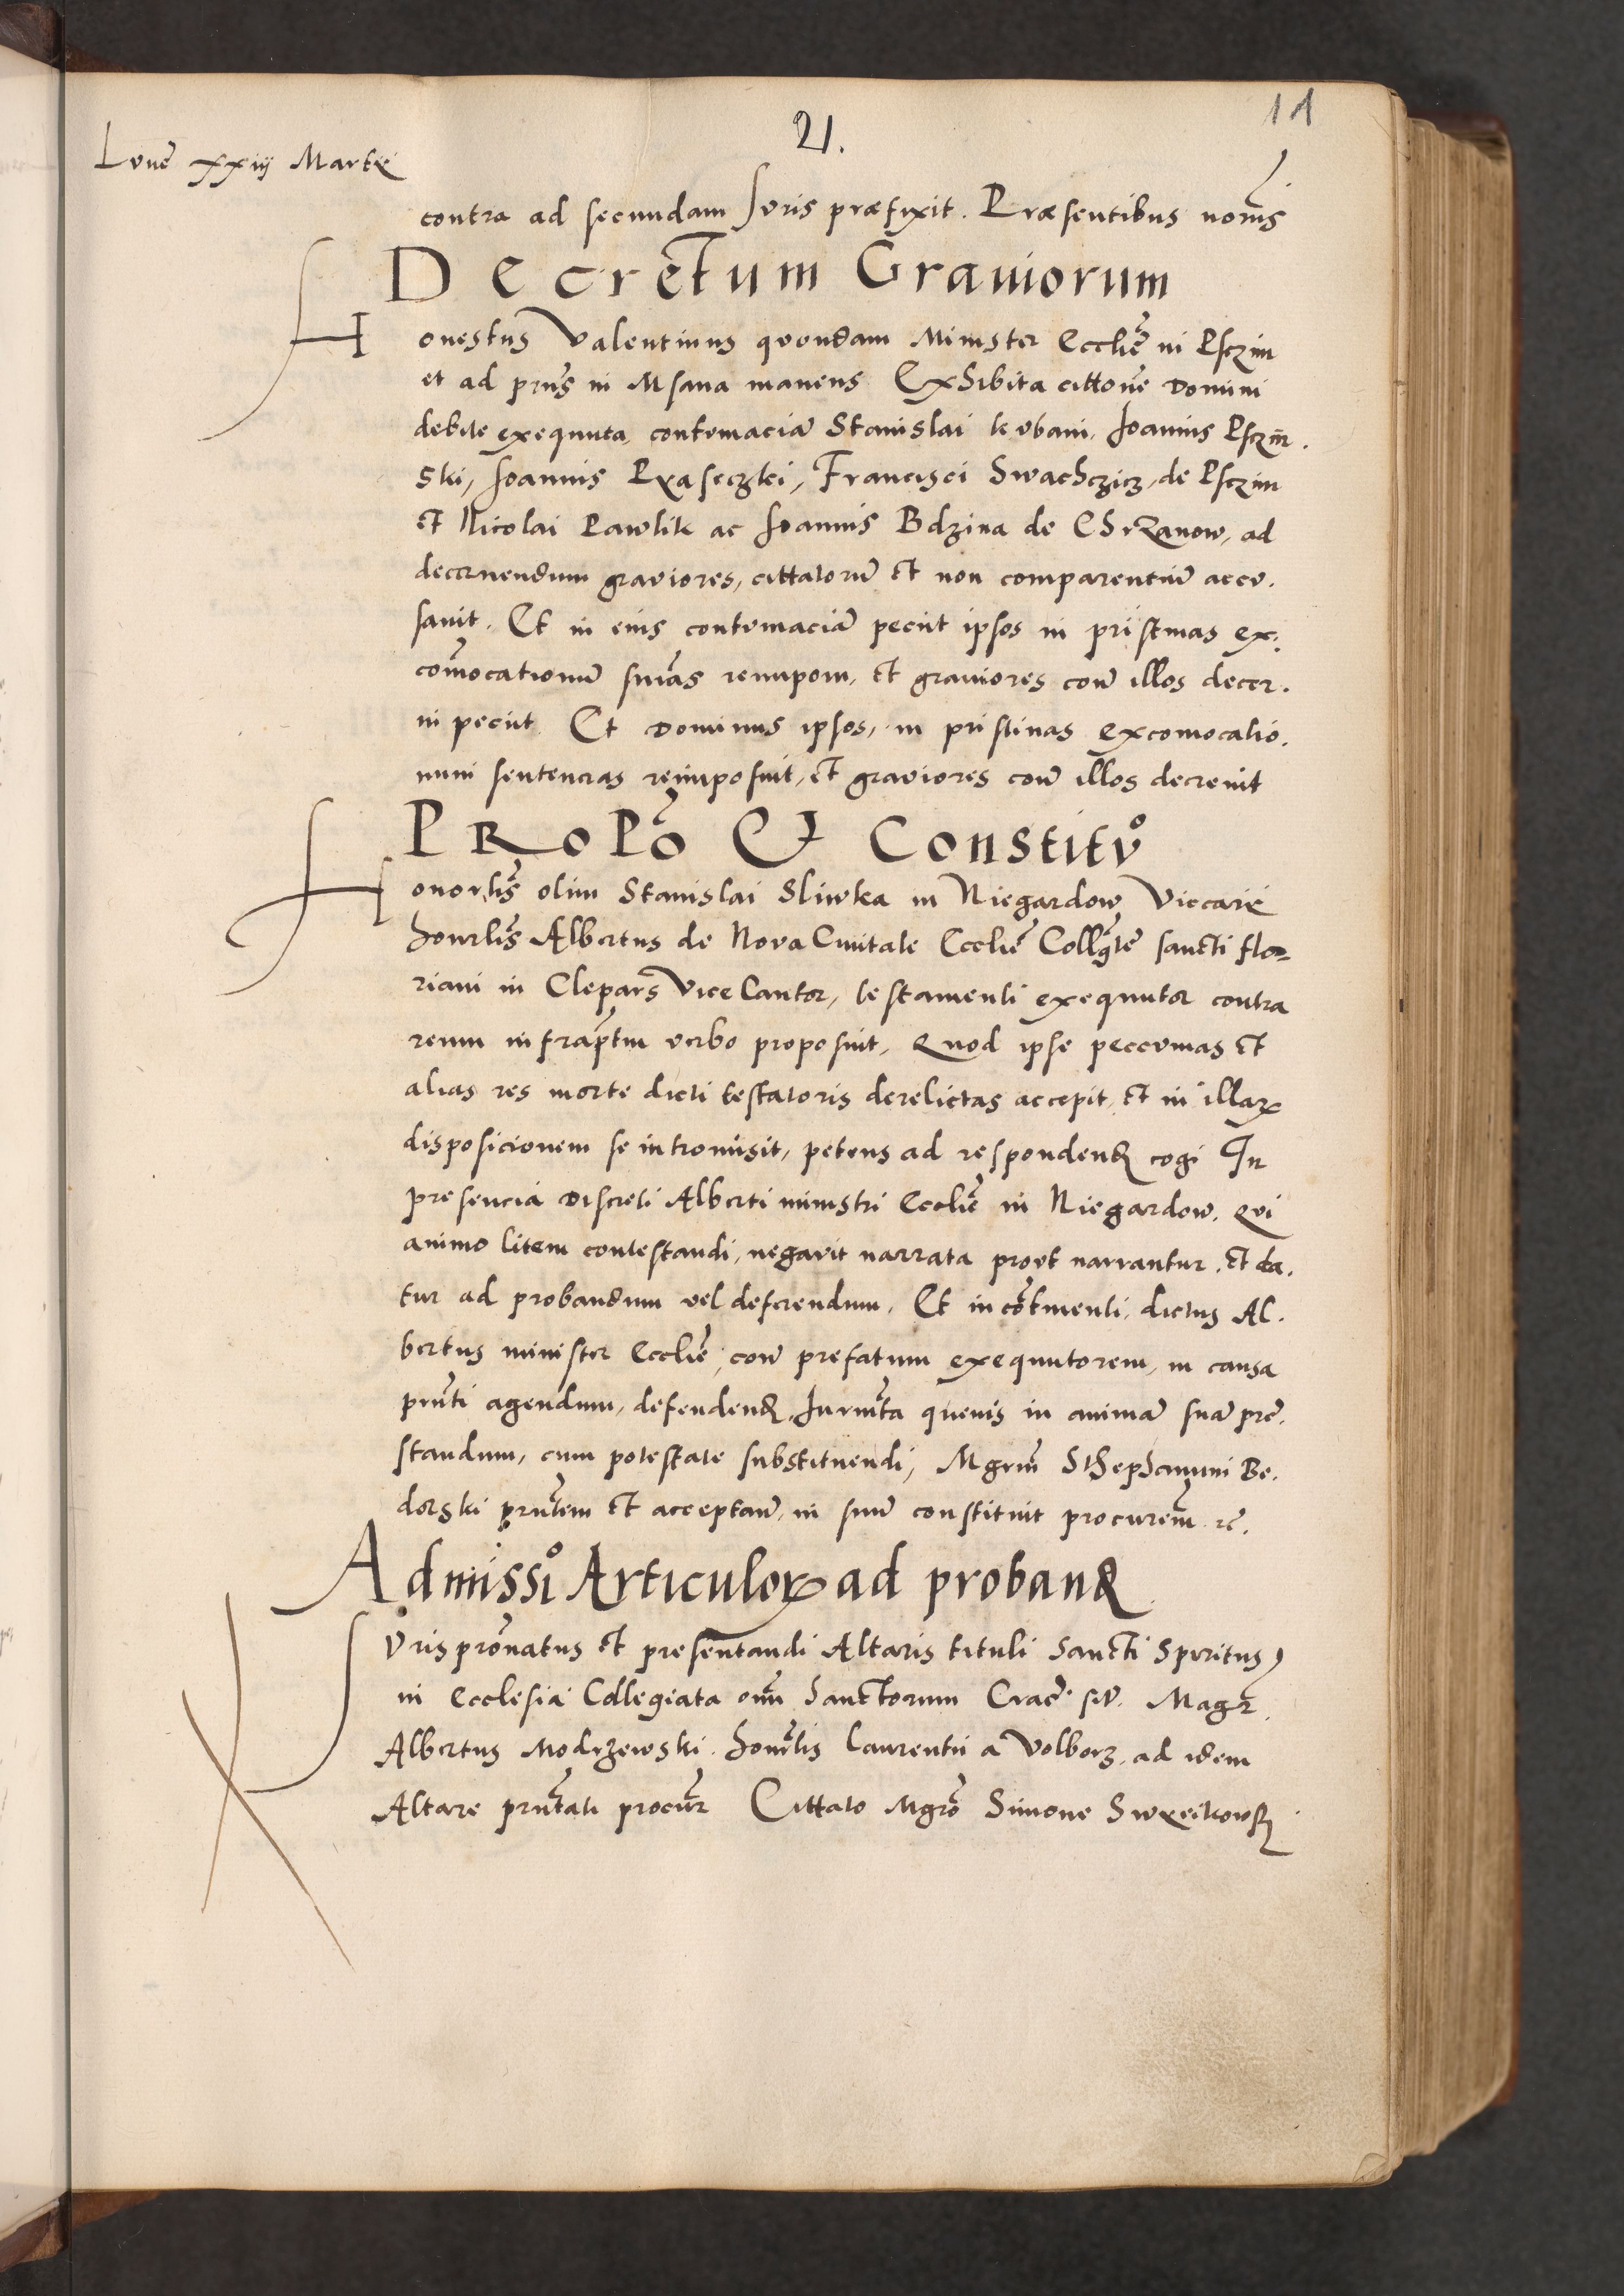 21.
11
Lune xxiij Martii
contra ad secundam Juris præfixit. Præsentibus nota͞s
Decretum Grauiorum
Honestus Valentinus quondam Minister Ecclie͞ in Psczin
et ad pn͞s in Msana manens Exhibita cittone͞ Domini
debite exequuta, contumacia͞ Stanislai kubani, Joannis Psczin.
ski, Joannis Pxaseczki, Francisci Swachczicz, de Psczin
et Nicolai Pawlik ac Joannis Bdzina de Chrzanow, ad
decernendum grauiores, cittatoru͞ et non comparentiu͞ accu.
sauit. Et in eius contumacia͞ peciit ipsos in pristinas ex.
com͞ocationum sn͞ias reimponi, et grauiores con͞ illos decer.
ni peciit. Et Dominus ipsos, in pristinas excomocatio.
num sentencias reimposuit, et grauiores con͞ illos decreuit
PROPo͞ Et Constituº
Honorlis͞ olim Stanislai Sliwka in Niegardow Viccarii
honrlis͞ Albertus de Nova Ciuitate Ecclie͞ Collgte͞ sancti flo=
riani in Clepars ViceCantor, testamenti exequutor contra
reum infrap͞tm verbo proposuit, Quod ipse peccunias et
alias res morte dicti testatoris derelictas accepit, et in illarꝝ
disposicionem se intromisit, petens ad respondendꝝ cogi In
presencia Discreti Alberti ministri Ecclie͞ in Niegardow. Qui
animo litem contestandi, negavit narrata prout narrantur. et da.
tur ad probandum vel deferendum. Et in co͞tinenti, dictus Al.
bertus minister Ecclie͞, con͞ prefatum exequutorem, in causa
pn͞ti agendum, defendendꝝ, Jurm͞ta queuis in anima͞ sua͞ pre͞.
standum, cum potestate substituendi, Mgrm͞ Sthephanum Be.
dorski pn͞tem et acceptan͞, in suu͞ constituit procurem͞ rc͞.
Admissiº Articulorꝝ ad probandꝝ
Juris pron͞atus et presentandi Altaris tituli Sancti Spiritus,
in Ecclesia Collegiata om͞ Sanctorum Crac͞. sit͞. Magr͞.
Albertus Modrzewski. honr͞lis Laurentii a Volborz, ad idem
Altare pn͞tati procur͞ Cittato Mgro͞ Simone